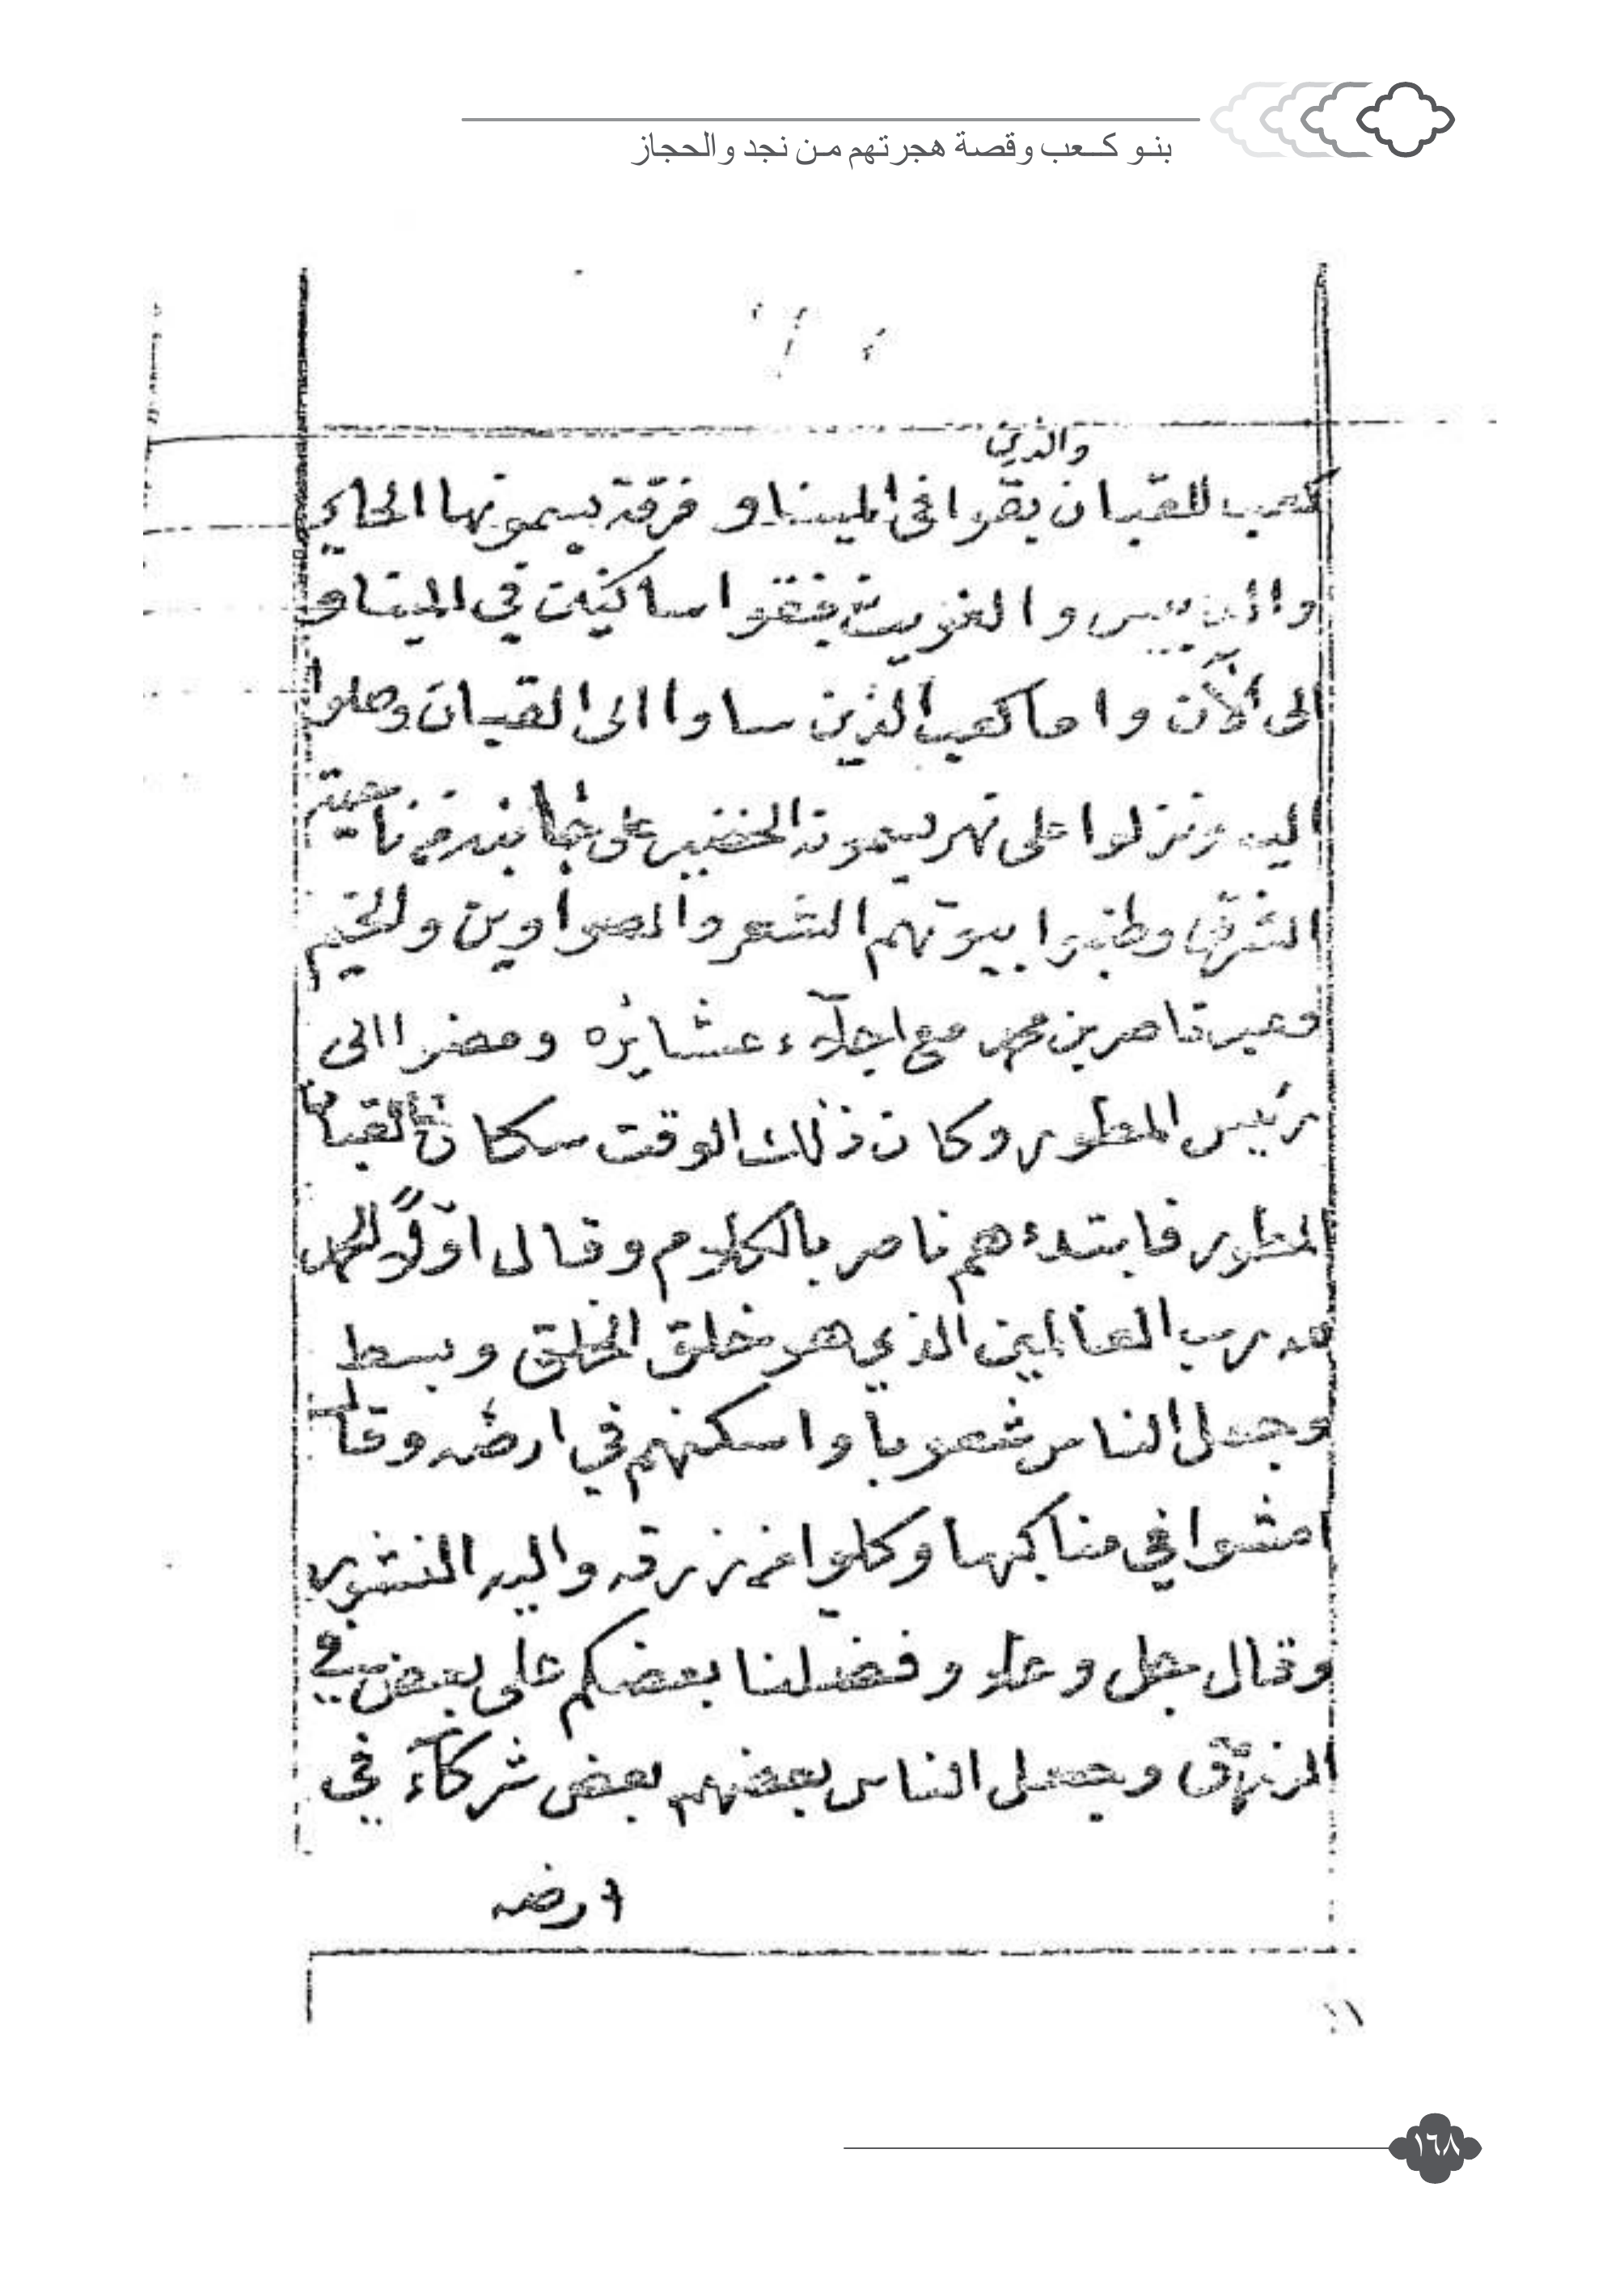 بنو كعب وقصة هجرتهم من نجد والحجاز
والذين
كعب للقبان بقوا فى الميناو فرقة يسمونها الحاير
والغويث فبقوا ساكنين في الميناو
الى الآن واما كعب الذين ساوا الى القبان وصلوا
اليه ونزلوا على نهر يسمونه الخضير على جانبه من ناحيته
الشرقى وطنبوا بيوتهم الشعر والصواوين والخيم
وعبر ناصر بن محمد مع اجلآء عشايره ومضوا الى
رئيس المطور وكان ذلك الوقت سكان القبان
المطور فابتدء هم ناصر بالكلام وقال اوّلاً الحمد
لله رب العالمين الذي هو خلق الخلق وبسط
وجعل الناس شعوباً واسكنهم في ارضه وقال
امشوا في مناكبها وكلوا من رزقه واليه النشور
وقال جل وعلا وفضلنا بعضكم على بعض في
الرزق وجعل الناس بعضهم بعض شركآء في
ارضه
١٦٨